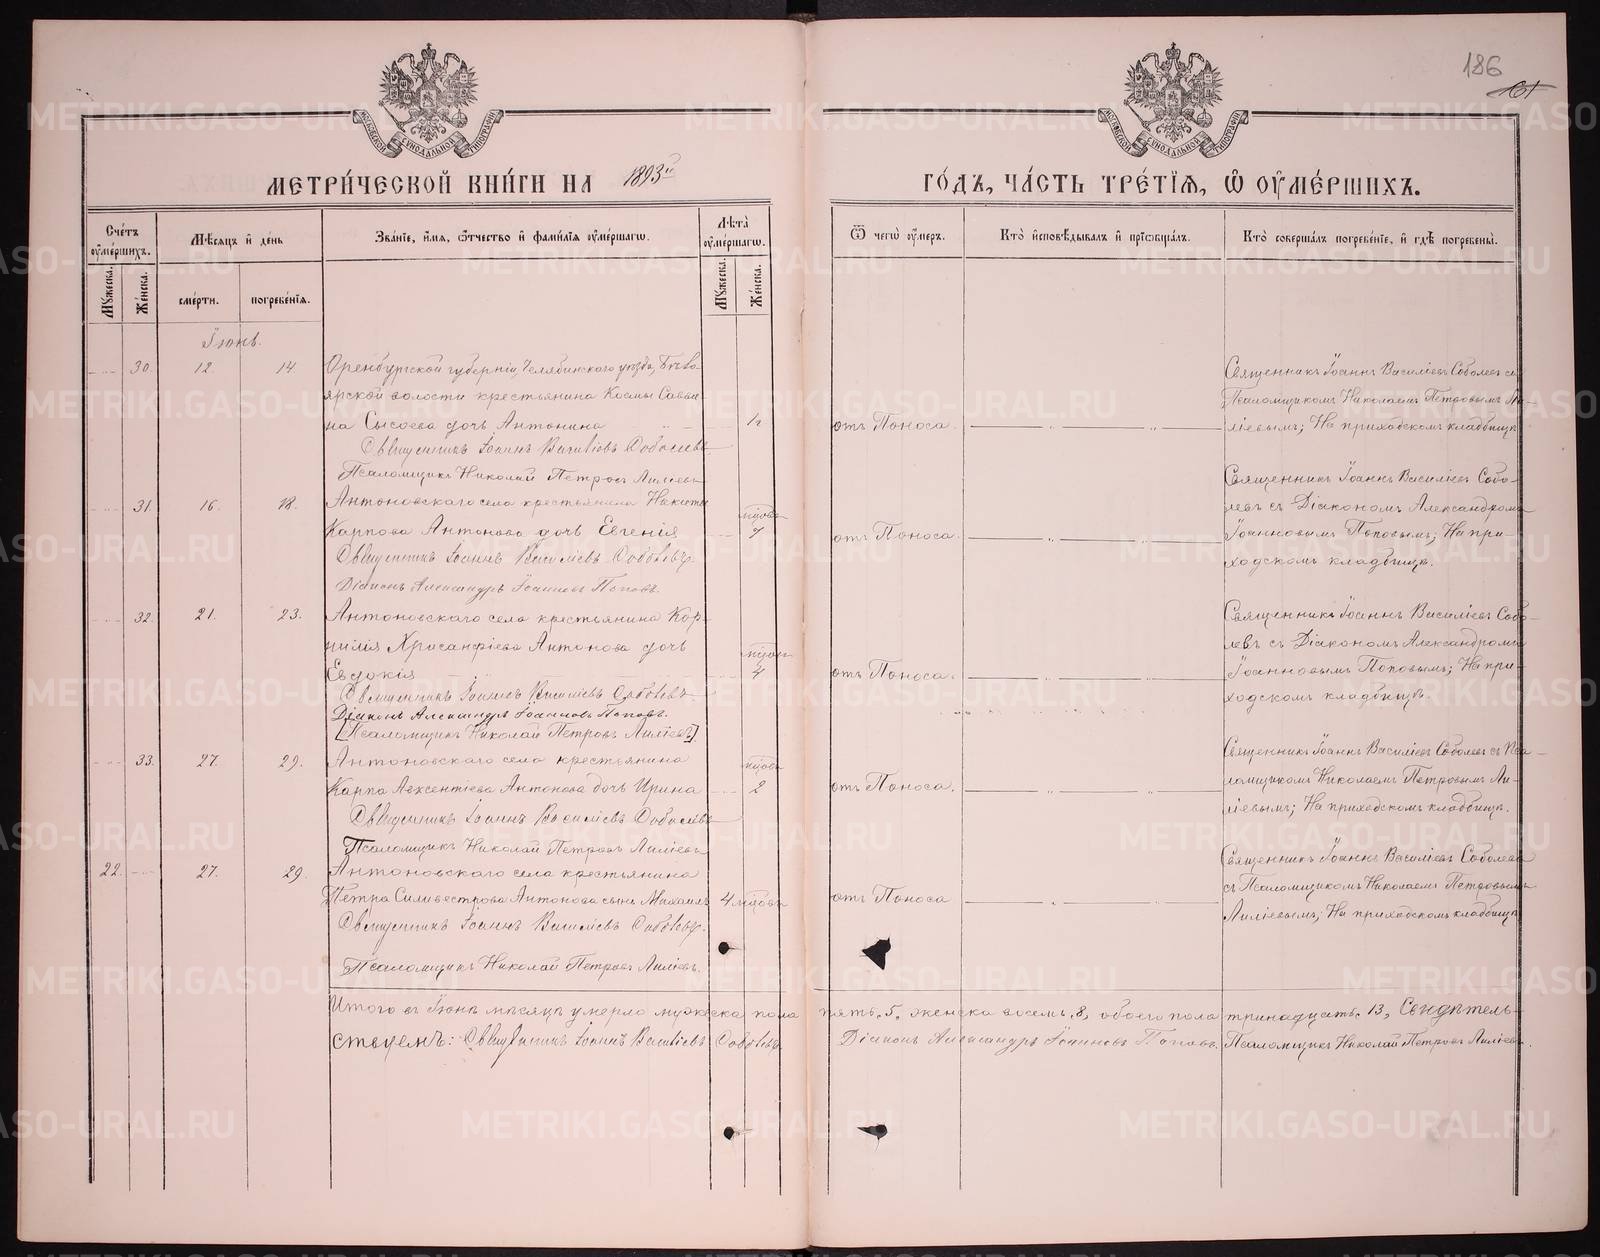 186
МЕТРИ́ЧЕСКОЙ КНИ́ГИ НА 1893й ГО́ДЪ, ЧА́СТЬ ТРЕ́ТІѦ, Ѡ ОУМЕ́РШИХЪ.
Сче́тъ оуме́ршихъ.
Мꙋжеска.
Же́нска.
Мѣсяцъ и де́нь
сме́рти.
погребе́нія.
Зва́ніе, и́мя, ѻ́тчество и фами́лія оуме́ршагѡ.
Лѣта̀ оуме́ршагѡ.
Мꙋжеска.
Же́нска.
Ѿ чегѡ̀ оу́меръ.
Кто̀ и҆сповѣ́дывалъ и҆ прїѡбща́лъ.
Кто̀ соверша́лъ погребе́ніе, и҆ гдѣ̀ погребены̀.
Іюнь.
30. 12. 14
Оренбургской губерніи, Челябинскаго уѣзда,
ярской волости крестьянина Космы Савви-
на Сысоева дочь Антонина
отъ Поноса.
Священникъ Іоаннъ Василіевъ Соболевъ
Псаломщикъ Николай Петровъ Лиліевъ
Священникъ Іоаннъ Василіевъ Соболевъ съ
Псаломщикомъ Николаемъ Петровымъ Ли-
ліевымъ; На приходскомъ кладбищѣ
31. 16. 18.
Антоновскаго села крестьянина Никиты
Карпова Антонова дочь Евгенія
отъ Поноса.
Священникъ Іоаннъ Василіевъ Соболевъ.
Діаконъ Александръ Іоанновъ Поповъ.
Священникъ Іоаннъ Василіевъ Собо-
левъ съ Діакономъ Александромъ
Іоанновымъ Поповымъ; На при-
ходскомъ кладбищѣ.
32. 21. 23.
Антоновскаго села крестьянина Кор-
нилія Хрисанфіева Антонова дочь
Евдокія 4
отъ Поноса.
Священникъ Іоаннъ Василіевъ Соболевъ
Діаконъ Александръ Іоанновъ Поповъ.
[Псаломщикъ Николай Петровъ Лиліевъ]
Священникъ Іоаннъ Василіевъ Собо-
левъ съ Діакономъ Александромъ
Іоанновымъ Поповымъ; На при-
ходскомъ кладбищѣ.
33. 27. 29.
Антоновскаго села крестьянина
Карпа Авксентіева Антонова дочь Ирина 2
отъ Поноса.
Священникъ Іоаннъ Василіевъ Соболевъ
Псаломщикъ Николай Петровъ Лиліевъ
Священникъ Іоаннъ Василіевъ Соболевъ съ Пса-
ломщикомъ Николаемъ Петровымъ Ли-
ліевымъ; На приходскомъ кладбищѣ.
22. 27. 29.
Антоновскаго села крестьянина
Петра Силивестрова Антонова сынъ Михаилъ 4 мѣсяцовъ
отъ Поноса
Священникъ Іоаннъ Василіевъ Соболевъ.
Псаломщикъ Николай Петровъ Лиліевъ.
Священникъ Іоаннъ Василіевъ Соболевъ
съ Псаломщикомъ Николаемъ Петровымъ
Лиліевымъ; На приходскомъ кладбищѣ
Итого въ Іюнѣ мѣсяцѣ умерло мужеска пола пять, 5, женска восемь, 8, обоего пола тринадцать, 13, Свидѣтель-
ствуемъ: Священникъ Іоаннъ Василіевъ Соболевъ. Діаконъ Александръ Іоанновъ Поповъ. Псаломщикъ Николай Петровъ Лиліевъ.
METRIKI.GASO-URAL.RU